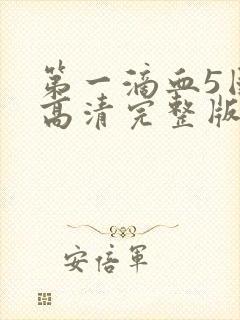 第一滴血5
高清完整版
安倍軍